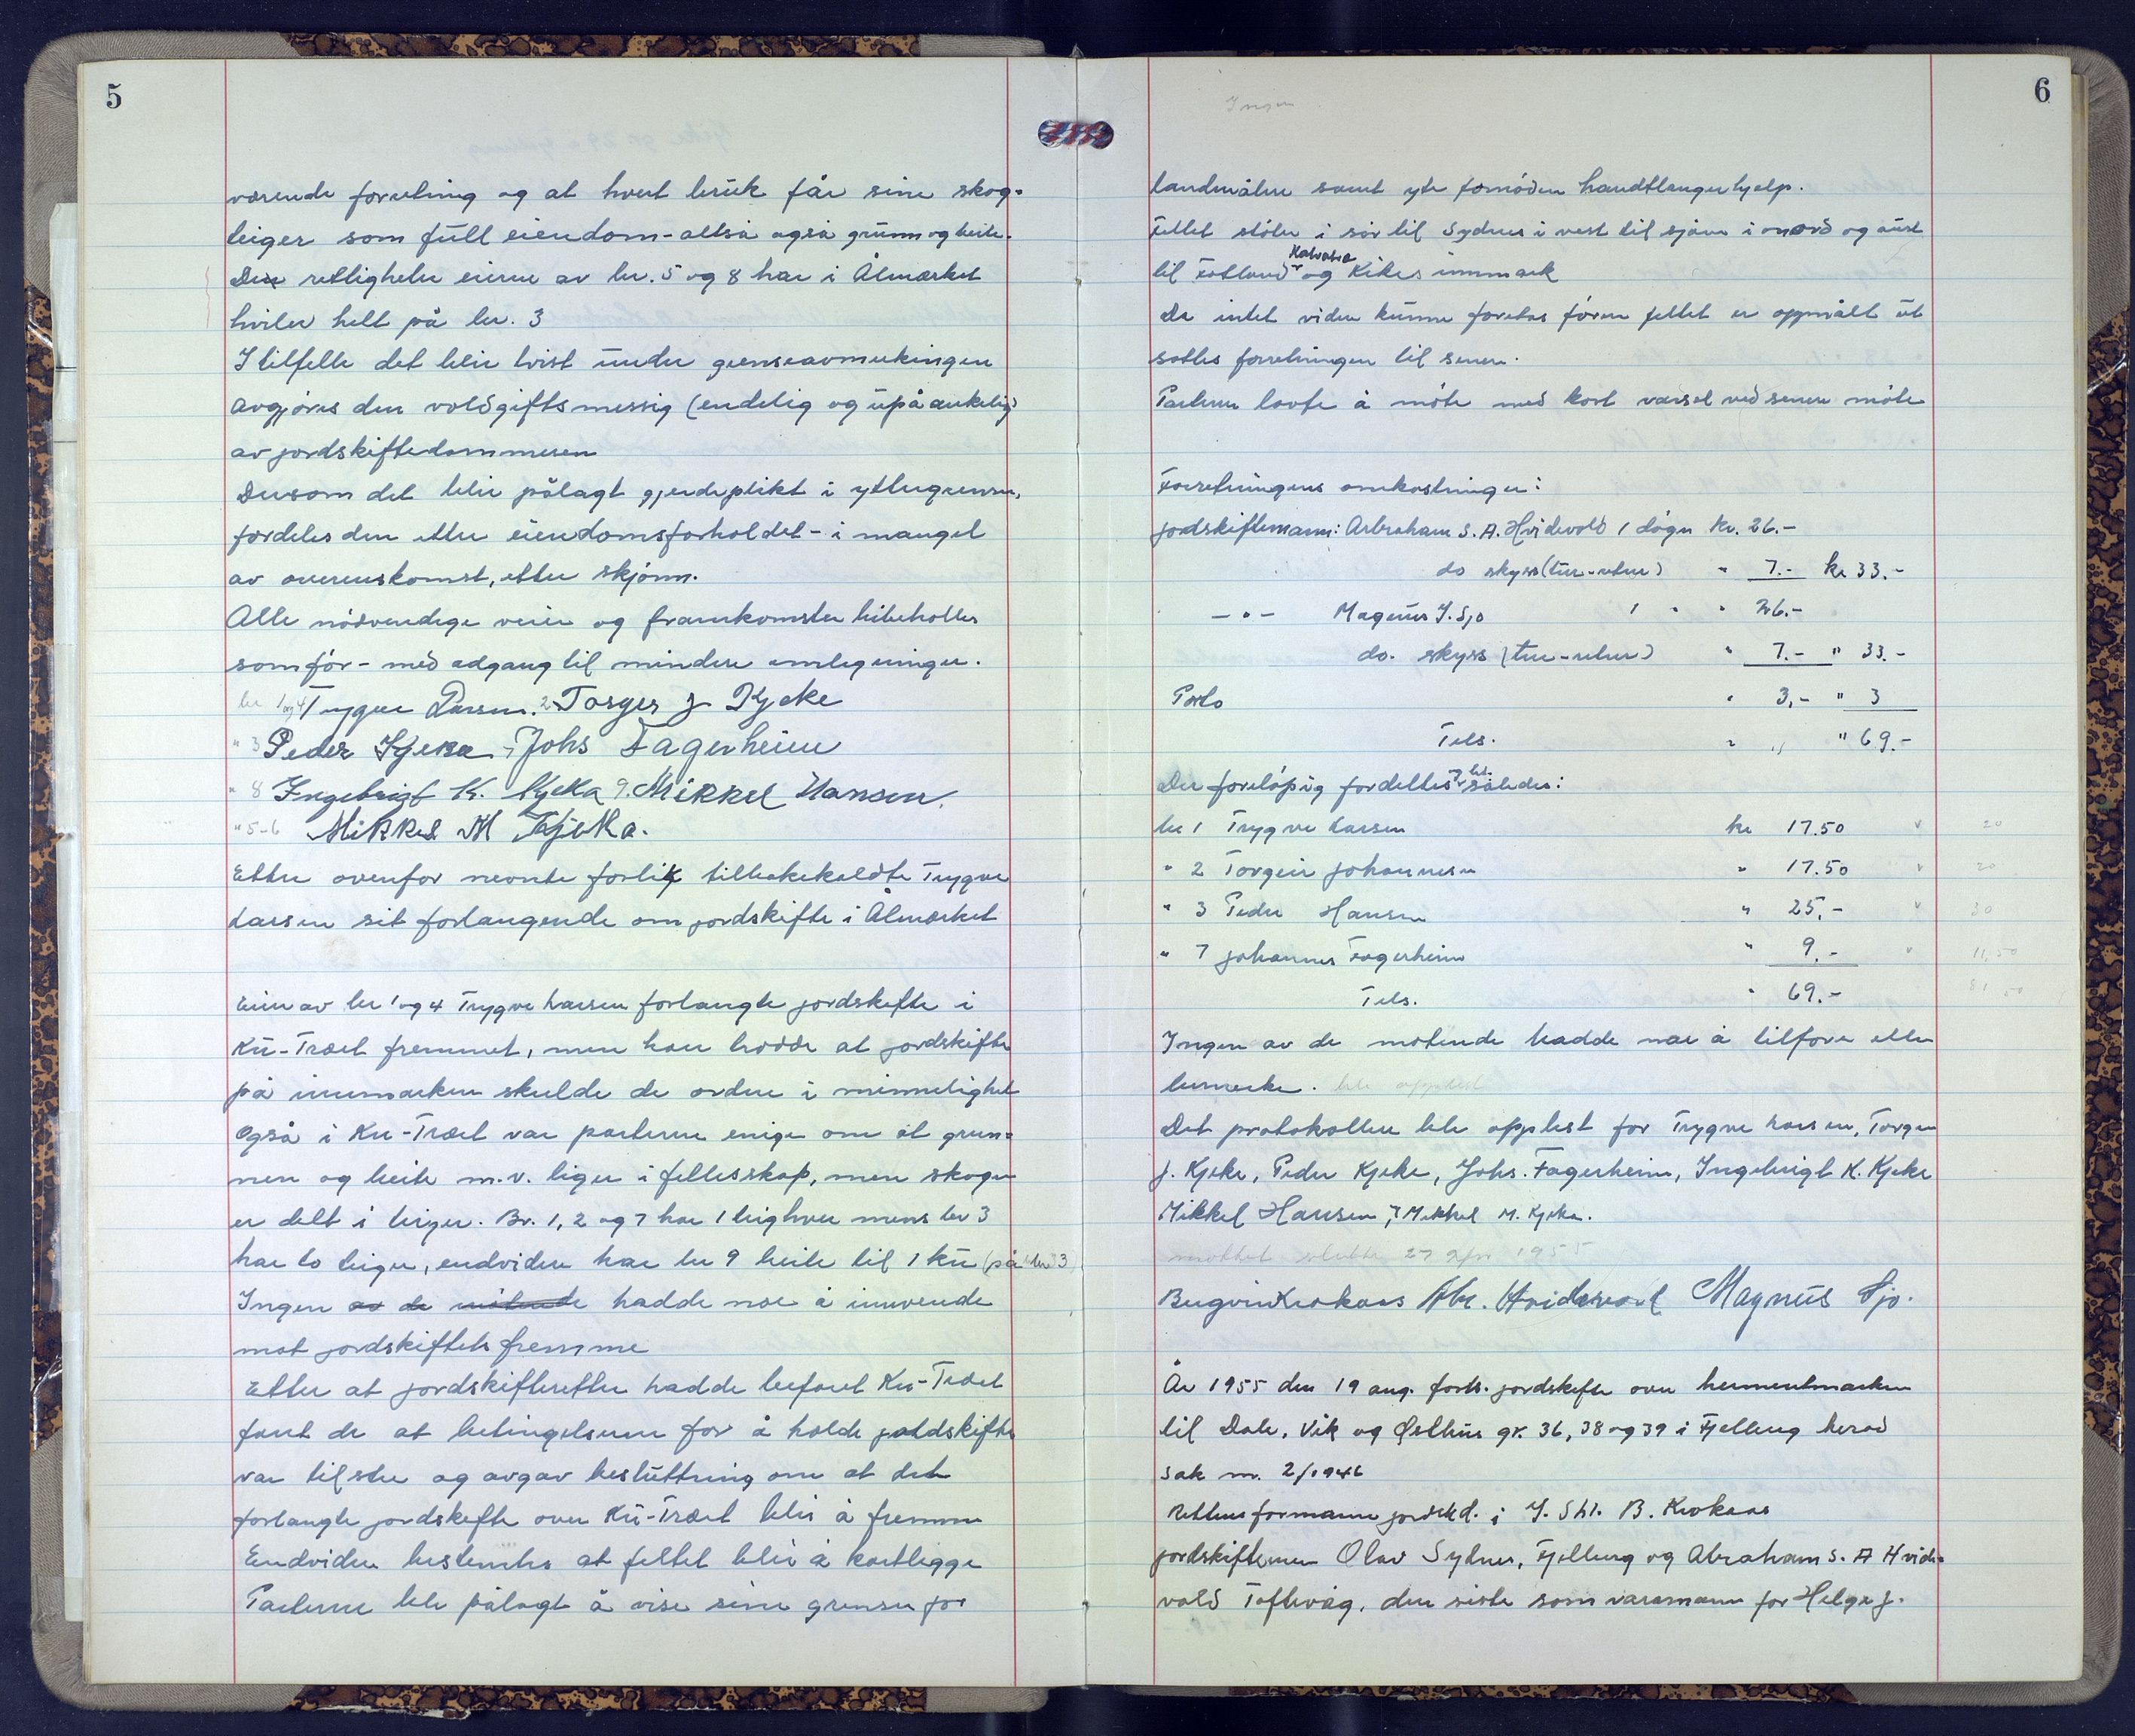 5
værende forretning og at hvert bruk får sine skog-
teiger som full eiendom - altså også grunn og beite.
Den rettigheter eierne av br. 5 og 8 har i Ålmarket
hviler helt på br. 3
I tilfelle det blir tvist under grenseavmerkingen
avgjøres den voldgiftsmessig (endelig og upåankelig)
av jordskiftedommeren
Dersom det blir pålagt gjerdeplikt i yttergrensen,
fordeles den etter eiendomsforholdet - i mangel
av overenskomst, etter skjønn.
Alle nødvendige veier og framkomster bibeholdes
som før - med adgang til mindre omlegninger.
br 1 og 4 Trygve Larsen. 2 Torger J Kjeke
" 3 Peder Kjeka 7 Johs Fagerheim
" 8 Ingebrigt K. Kjeka 9. Mikkel Hansen.
" 5-6 Mikkel M Kjeka.
Etter ovenfor nevnte forlik tilbakekaldte Trygve
Larsen sit forlangende om jordskifte i Ålmarket
Eier av br 1 og 4 Trygve Larsen forlangte jordskifte i
Ku-Træet fremmet, men han trodde at jordskifte
på innmarken skulde de ordne i minnelighet
Også i Ku-Træet var parterne enige om at grun-
nen og beite m.v. ligger i fellesskap, men skogen
er delt i teiger. Br. 1, 2 og 7 har 1 teig hver mens br 3
har to teiger, endvidere har br 9 beite til 1 ku (på br 3
Ingen av de møtende hadde noe å innvende
mot jordskiftets fremme
Etter at jordskifteretten hadde befaret Ku-Træet
fant de at betingelsene for å holde jordskifte
var tilstede og avgav beslutning om at det
forlangte jordskifte over Ku-Træet blir å fremme
Endvidere bestemtes at feltet blir å kartlegge
Parterne ble pålagt å vise sine grenser for
6
Ingen
landmåleren samt yte fornøden handtlangerhjelp.
Feltet støter i sør til Sydnes i vest til sjøen i nord og aust
til Fatland og Kikes innmark
Da intet videre kunne foretas førenn feltet er oppmålt ut
sattes forretningen til senere.
Parterne lovte å møte med kort varsel ved senere møte
Forretningens omkostninger:
jordskiftemann: Arbraham S. A. Hvidevold 1 døgn kr. 26.-
do skyss (tur-retur) " 7.- kr 33.-
- " - Magnus J. Sjo 1 " " 26.-
do. skyss (tur-retur) " 7.- " 33.-
Porto " 3,- " 3
Tils. " " " 69.-
Der foreløpig fordeltes således:
br 1 Trygve Larsen kr 17.50 v 20
" 2 Torgeir Johannesen " 17.50 v 20
" 3 Peder Hansen " 25,- v 30
" 7 Johannes Fagerheim " 9.- v 11,50
Tils. " 69.- 81 50
Ingen av de møtende hadde noe å tilføye eller
bemerke. ble opplest
Det protokollerte ble opplest for Trygve Larsen, Torger
J. Kjeke, Peder Kjeke, Johs. Fagerheim, Ingebrigt K. Kjeke
Mikkel Hansen, Mikkel M. Kjeka.
møttet sluttet 27 apr 1955
Bergvin Krokaas Abr. Hvidevold Magnus Sjo.
År 1955 den 19 aug. forts. jordskifte over heimeutmarken
til Dale, Vik og Østhus gr. 36, 38 og 39 i Fjelberg herad
Sak nr. 2/1946
Rettens formann jordskd. i Y. Shl. B. Krokaas
jordskiftemenn Olav Sydnes, Fjelberg og Abraham S. A Hvide-
vold Toftevåg, den siste som varamann for Helge J.